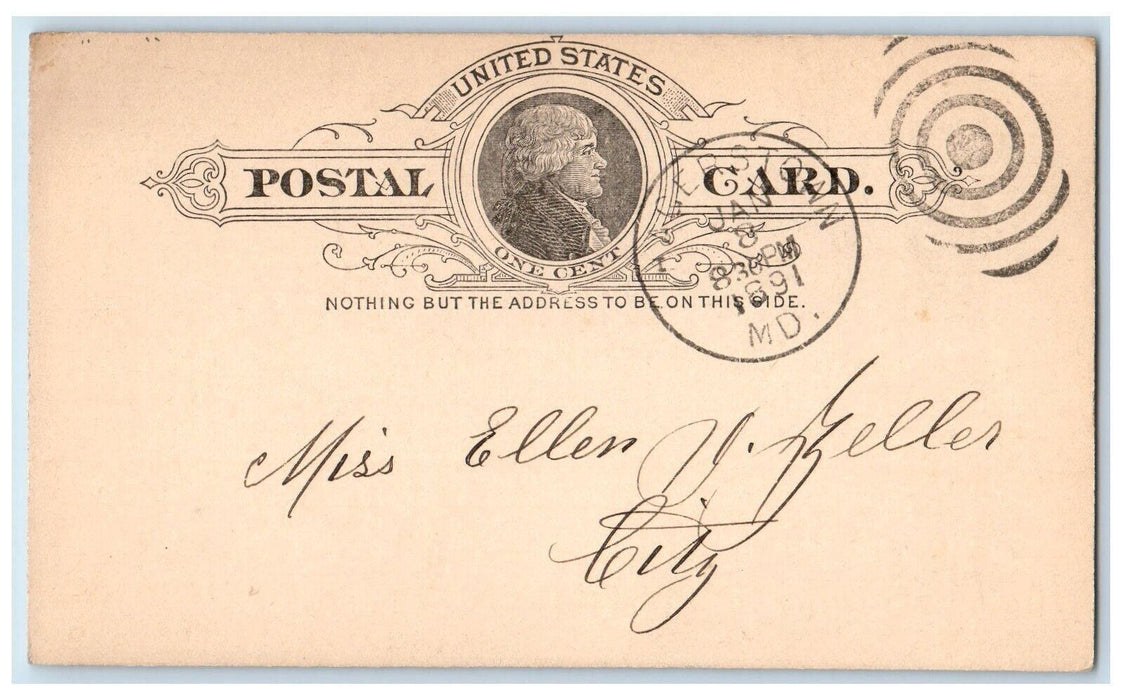 UNITED STATES
POSTAL CARD.
ONE CENT
NOTHING BUT THE ADDRESS TO BE ON THIS SIDE.
JAN
8
830PM
1891
MD.
Miss Ellen V. Zeller
City